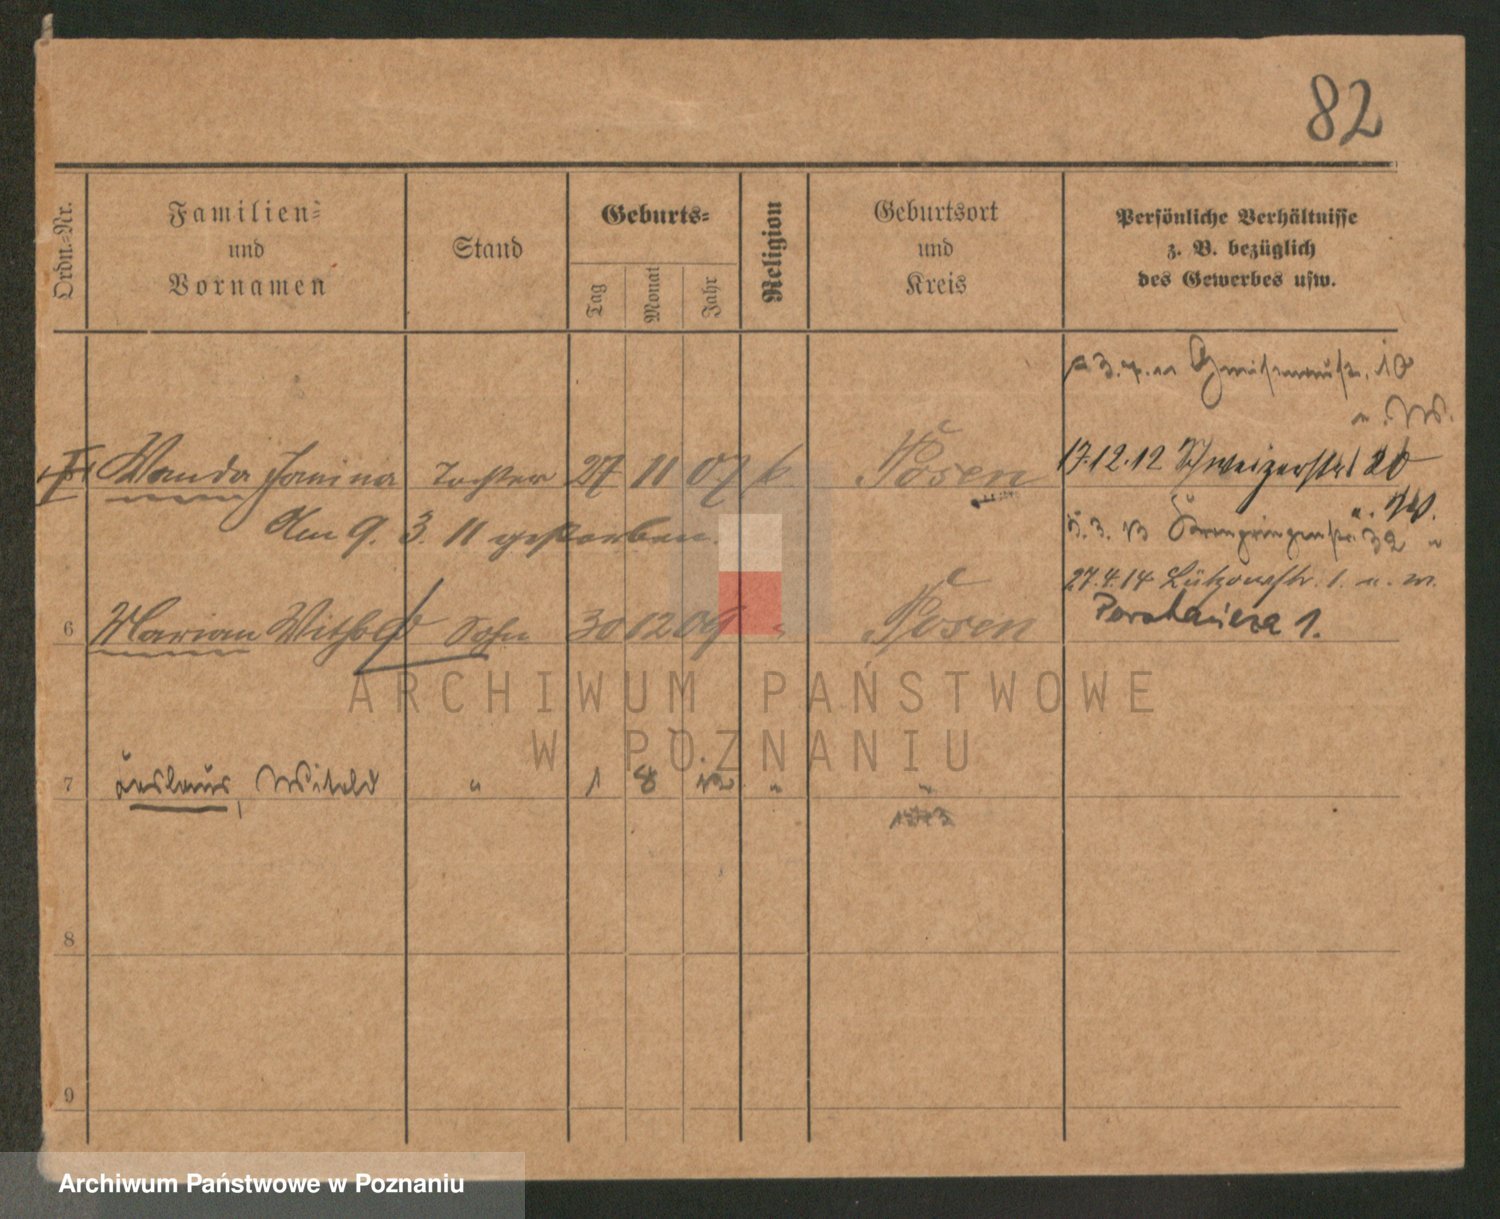 82
Ordn.-Nr.
Familien-
und
Vornamen
Stand
Geburts-
Tag
Monat
Jahr
Religion
Geburtsort
und
Kreis
Persönliche Verhältnisse
z. B. bezüglich
des Gewerbes usw.
10
Wanda Janina Tochter 27 11 07 k. Posen
17.12.12 Schweizerstr. 20
Am 9. 3. 11 gestorben.
32
27.4.14 Lützowstr. 1. u. w.
6 Marian Withold Sohn 30 12 09 " Posen
1.
ARCHIWUM PAŃSTWOWE
W POZNANIU
7 Witold " 1 8 12 " "
8
9
Archiwum Państwowe w Poznaniu